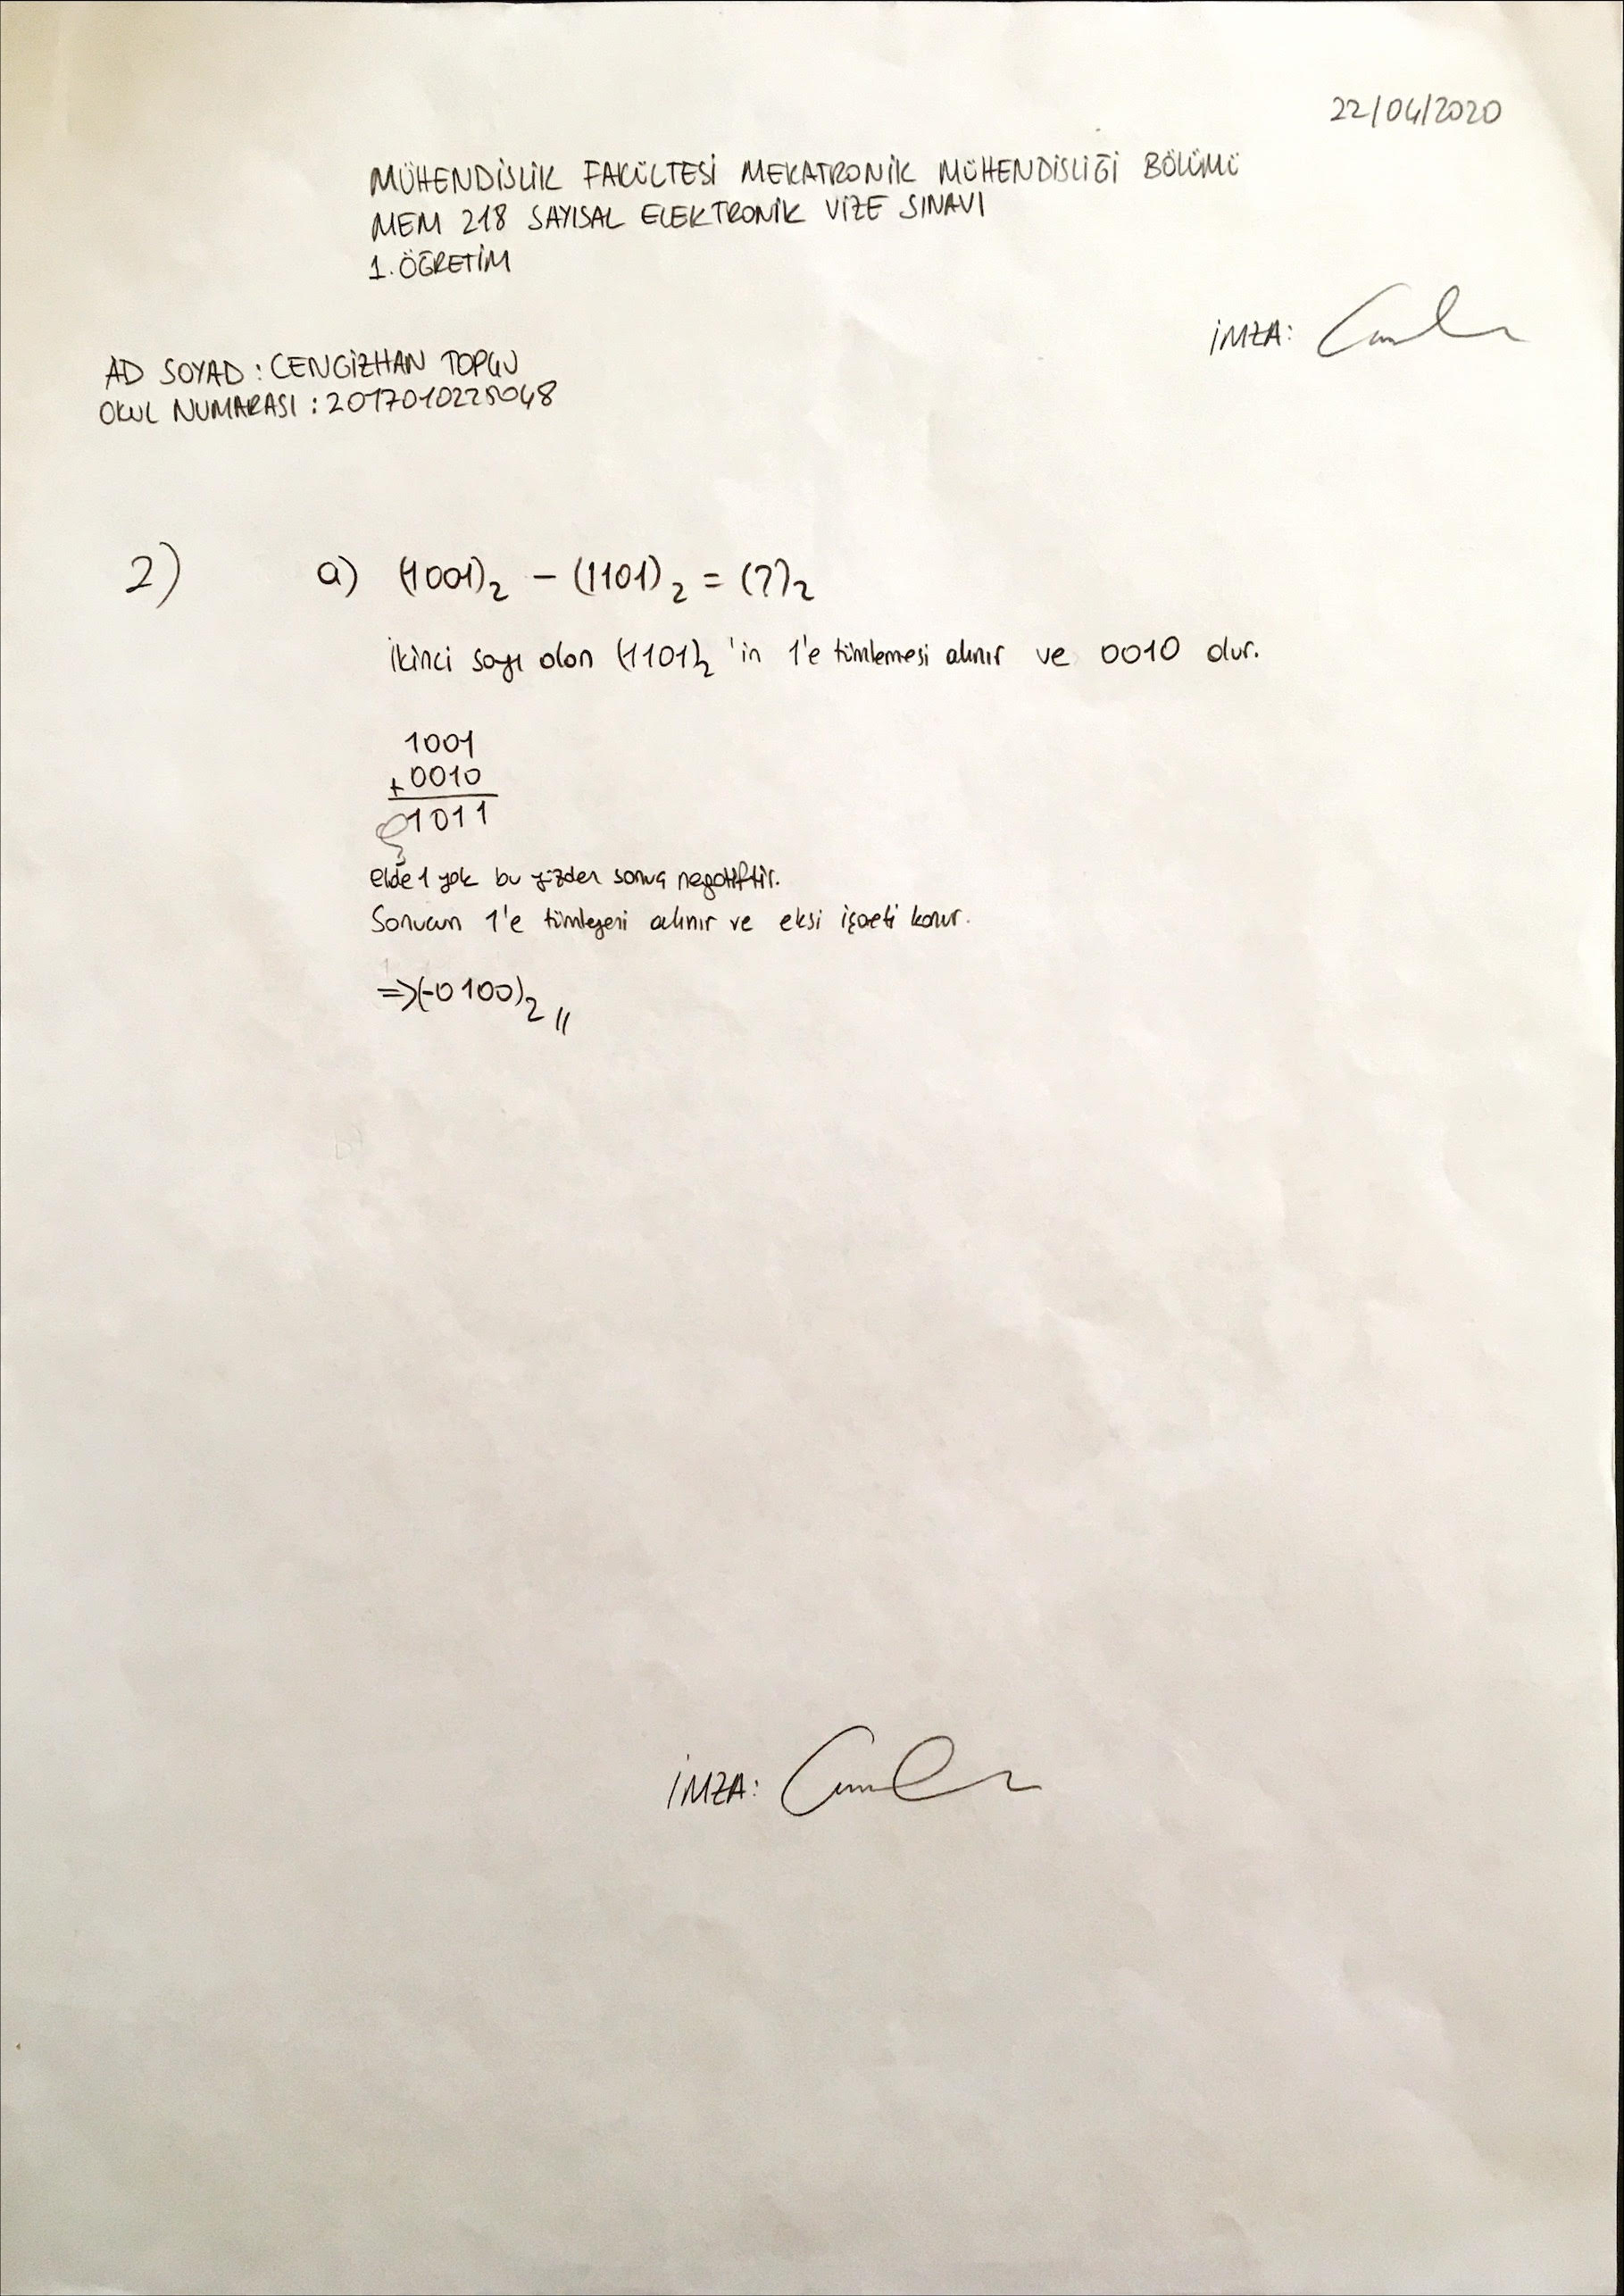 22/04/2020
MÜHENDİSLİK FAKÜLTESİ MEKATRONİK MÜHENDİSLİĞİ BÖLÜMÜ
MEM 218 SAYISAL ELEKTRONİK VİZE SINAVI
1. ÖĞRETİM
İMZA:
AD SOYAD : CENGİZHAN TOPÇU
OKUL NUMARASI : 2017010225048
2) a) (1001)₂ − (1101)₂ = (?)₂
İkinci sayı olan (1101)₂ 'in 1'e tümlemesi alınır ve 0010 olur.
1001
+ 0010
01011
elde 1 yok bu yüzden sonuç negatiftir.
Sonucun 1'e tümleyeni alınır ve eksi işareti konur.
=> (-0100)₂ //
İMZA: